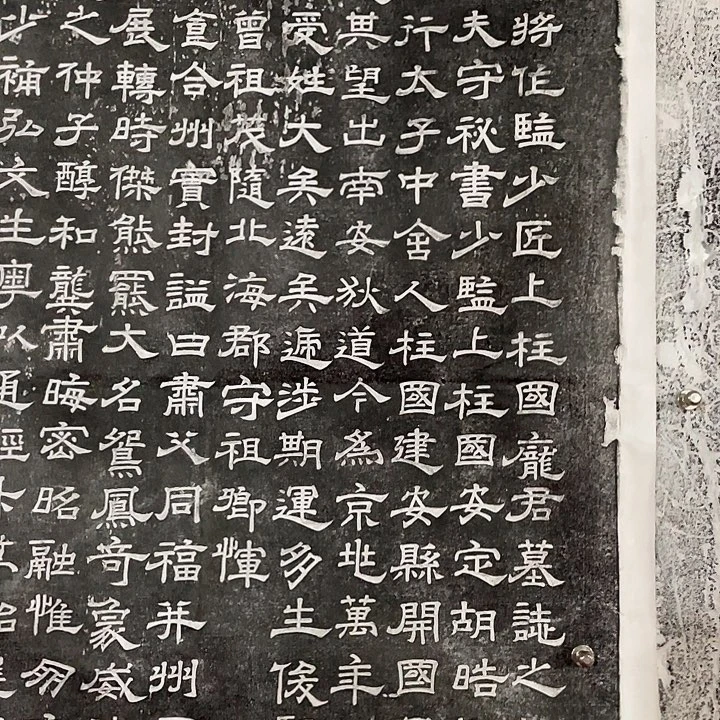 將作監少匠上柱國龐君墓誌之
夫守祕書少監上柱國安定胡晧
行太子中舍人柱國建安縣開國
其望出南安狄道今為京兆萬年
受姓大矣遠矣遞涉期運多生俊
曾祖茂隨北海郡守祖卿惲
合州實封謚曰肅父同福并州
展轉時傑熊羆大名鴛鳳奇象威
之仲子醇和龔肅晦密昭融惟
少補弘文生粵以通經